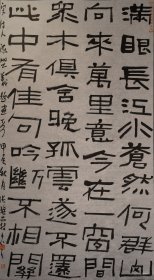 滿眼長江水蒼然何郡山
向來萬里意今在一窗間
衆木俱含晚孤雲遂不還
此中有佳句吟斷不相關